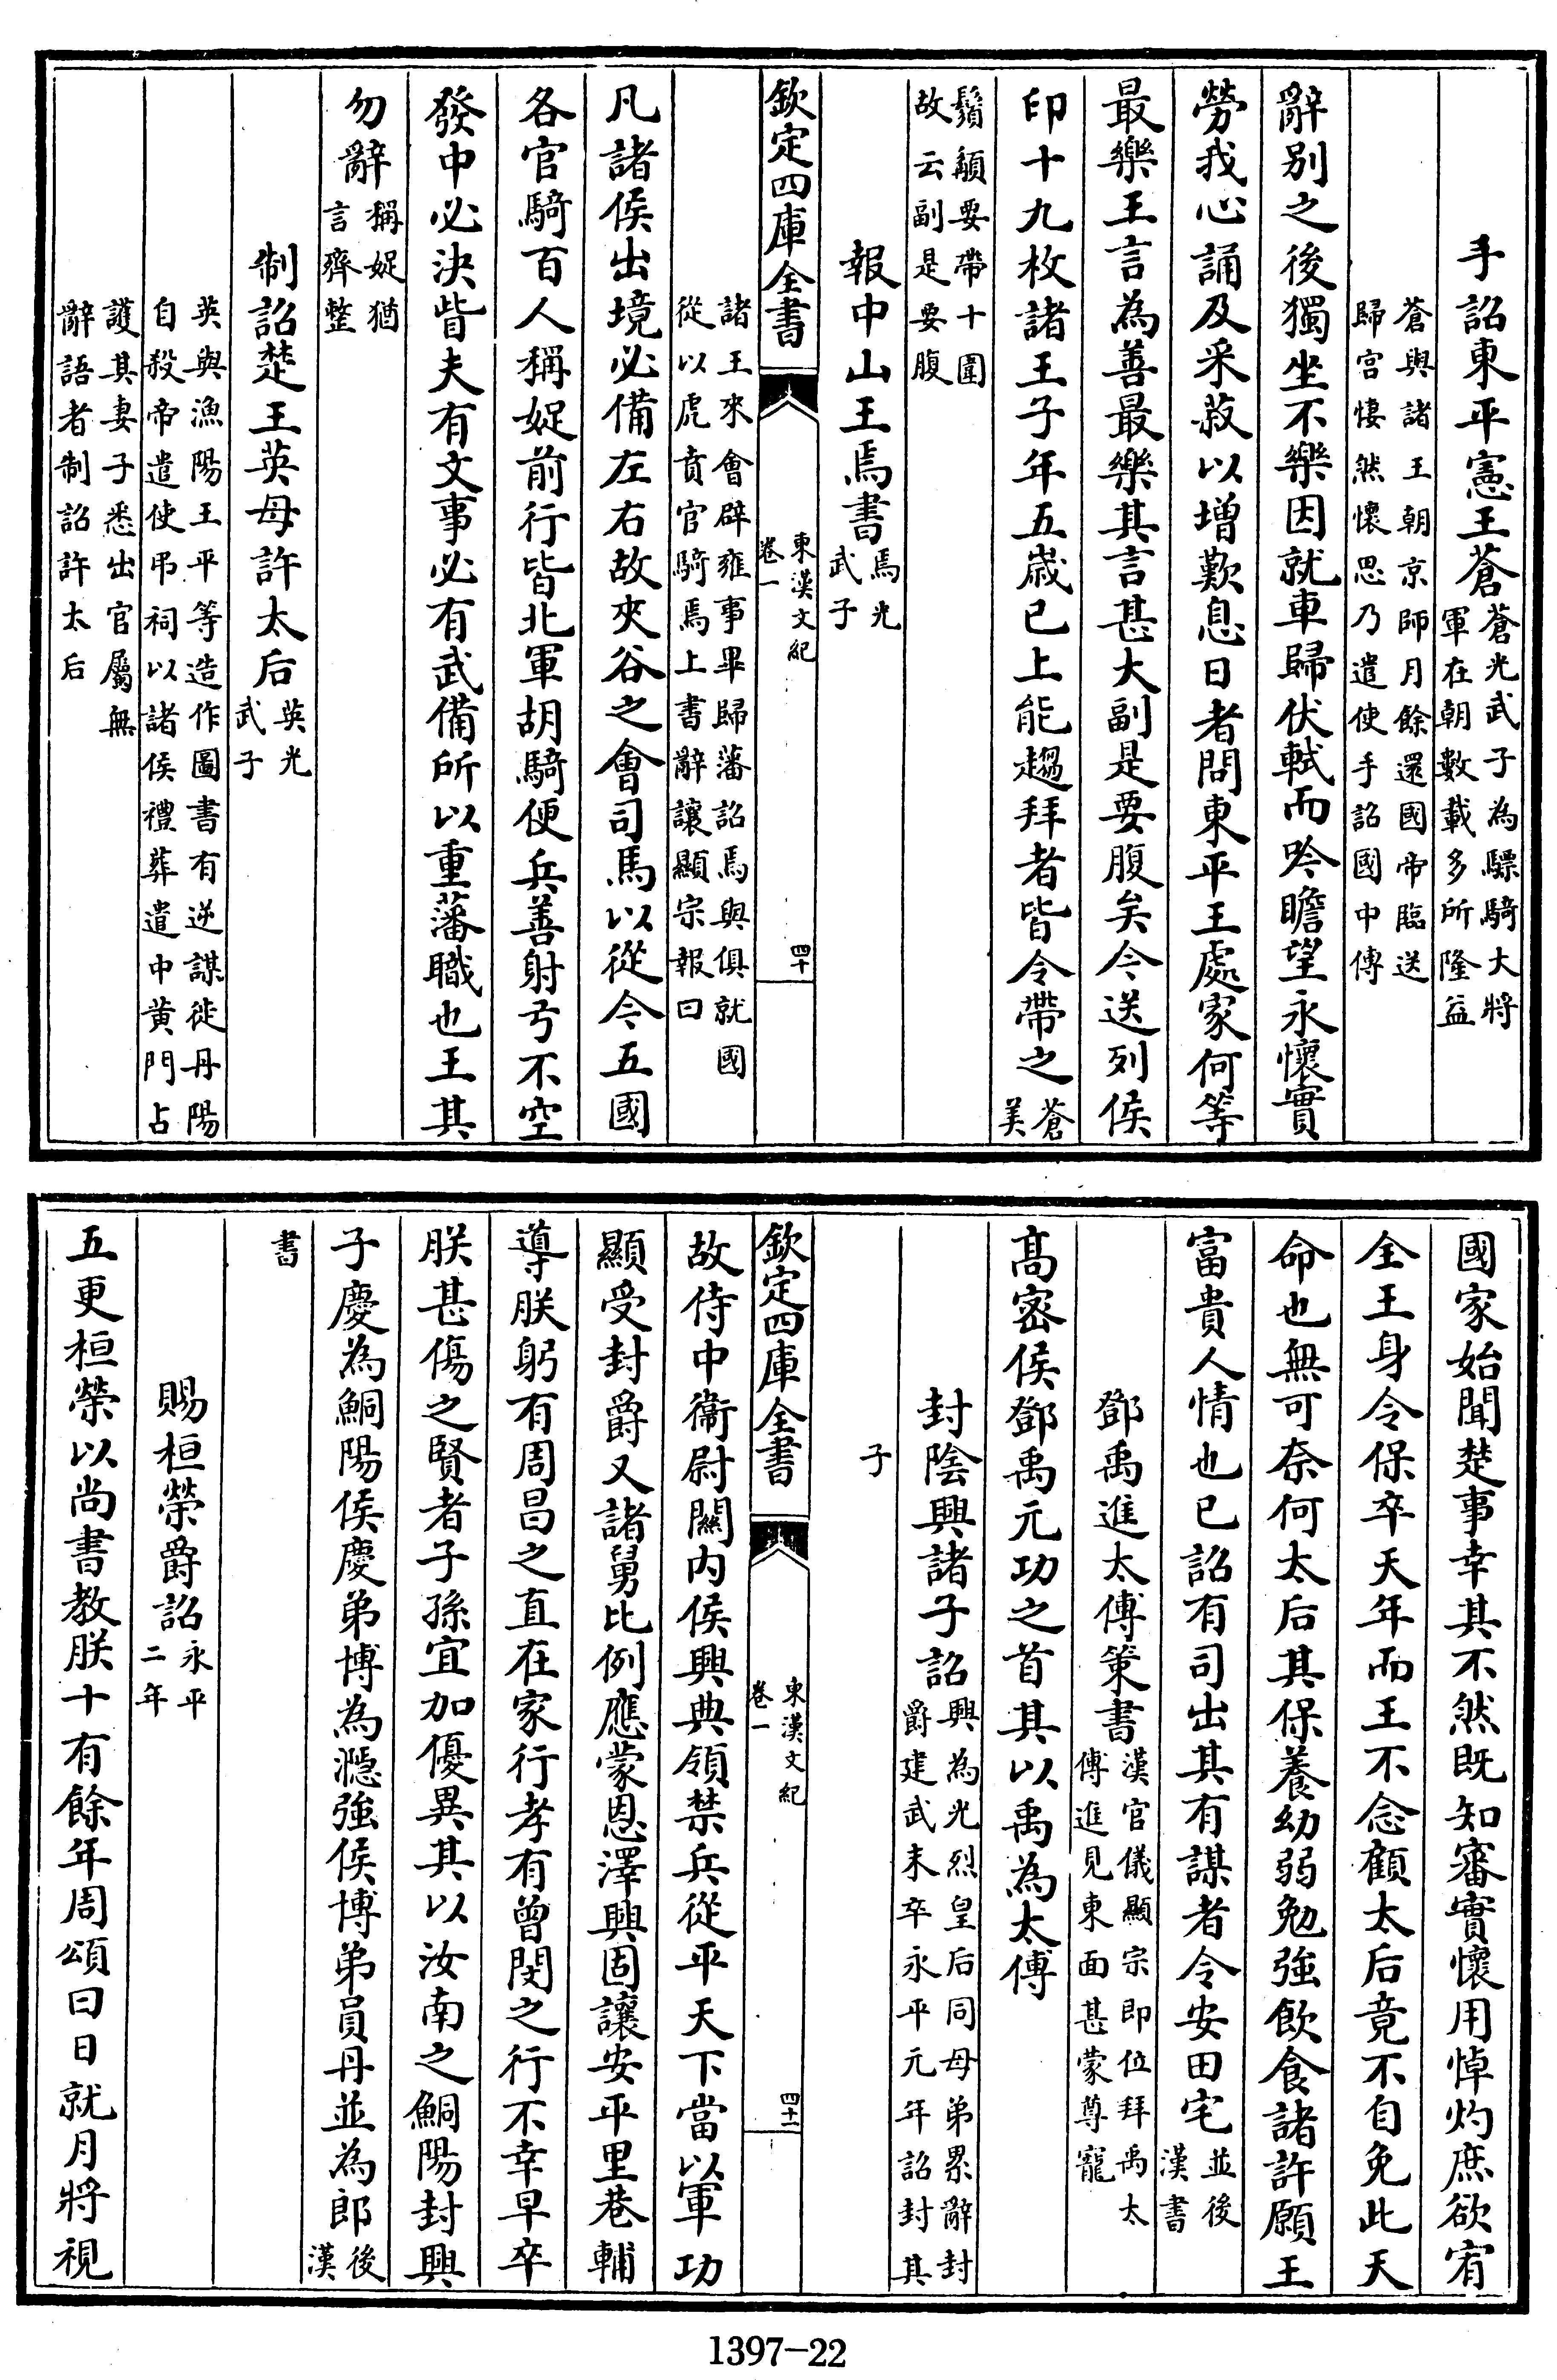 手詔東平憲王蒼蒼光武子為驃騎大將
軍在朝數載多所隆益
蒼與諸王朝京師月餘還國帝臨送
歸宫悽然懷思乃遣使手詔國中傅
辭别之後獨坐不樂因就車歸伏軾而吟瞻望永懷實
勞我心誦及采菽以增歎息日者問東平王處家何等
最樂王言為善最樂其言甚大副是要腹矣今送列侯
印十九枚諸王子年五歲已上能趨拜者皆令帶之蒼
美
鬚顙要帶十圍
故云副是要腹
報中山王焉書焉光
武子
欽定四庫全書
東漢文紀
卷一
四十
諸王來會辟雍事畢歸藩詔焉與俱就國
從以虎賁官騎焉上書辭讓顯宗報曰
凡諸侯出境必備左右故夾谷之會司馬以從今五國
各官騎百人稱娖前行皆北軍胡騎便兵善射弓不空
發中必決眥夫有文事必有武備所以重藩職也王其
勿辭稱娖猶
言齊整
制詔楚王英母許太后英光
武子
英與漁陽王平等造作圖書有逆謀徙丹陽
自殺帝遣使弔祠以諸侯禮葬遣中黄門占
護其妻子悉出官屬無
辭語者制詔許太后
國家始聞楚事幸其不然既知審實懷用悼灼庶欲宥
全王身令保卒天年而王不念顧太后竟不自免此天
命也無可奈何太后其保養幼弱勉強飲食諸許願王
富貴人情也已詔有司出其有謀者令安田宅並後
漢書
鄧禹進太傅策書漢官儀顯宗即位拜禹太
傅進見東面甚蒙尊寵
髙密侯鄧禹元功之首其以禹為太傅
封陰興諸子詔興為光烈皇后同母弟累辭封
爵建武末卒永平元年詔封其
子
欽定四庫全書
東漢文紀
卷一
四十一
故侍中衞尉關内侯興典領禁兵從平天下當以軍功
顯受封爵又諸舅比例應蒙恩澤興固讓安平里巷輔
導朕躬有周昌之直在家行孝有曾閔之行不幸早卒
朕甚傷之賢者子孫宜加優異其以汝南之鮦陽封興
子慶為鮦陽侯慶弟博為㶏強侯博弟員丹並為郎後
漢
書
賜桓榮爵詔永平
二年
五更桓榮以尚書教朕十有餘年周頌曰日就月將視
1397-22